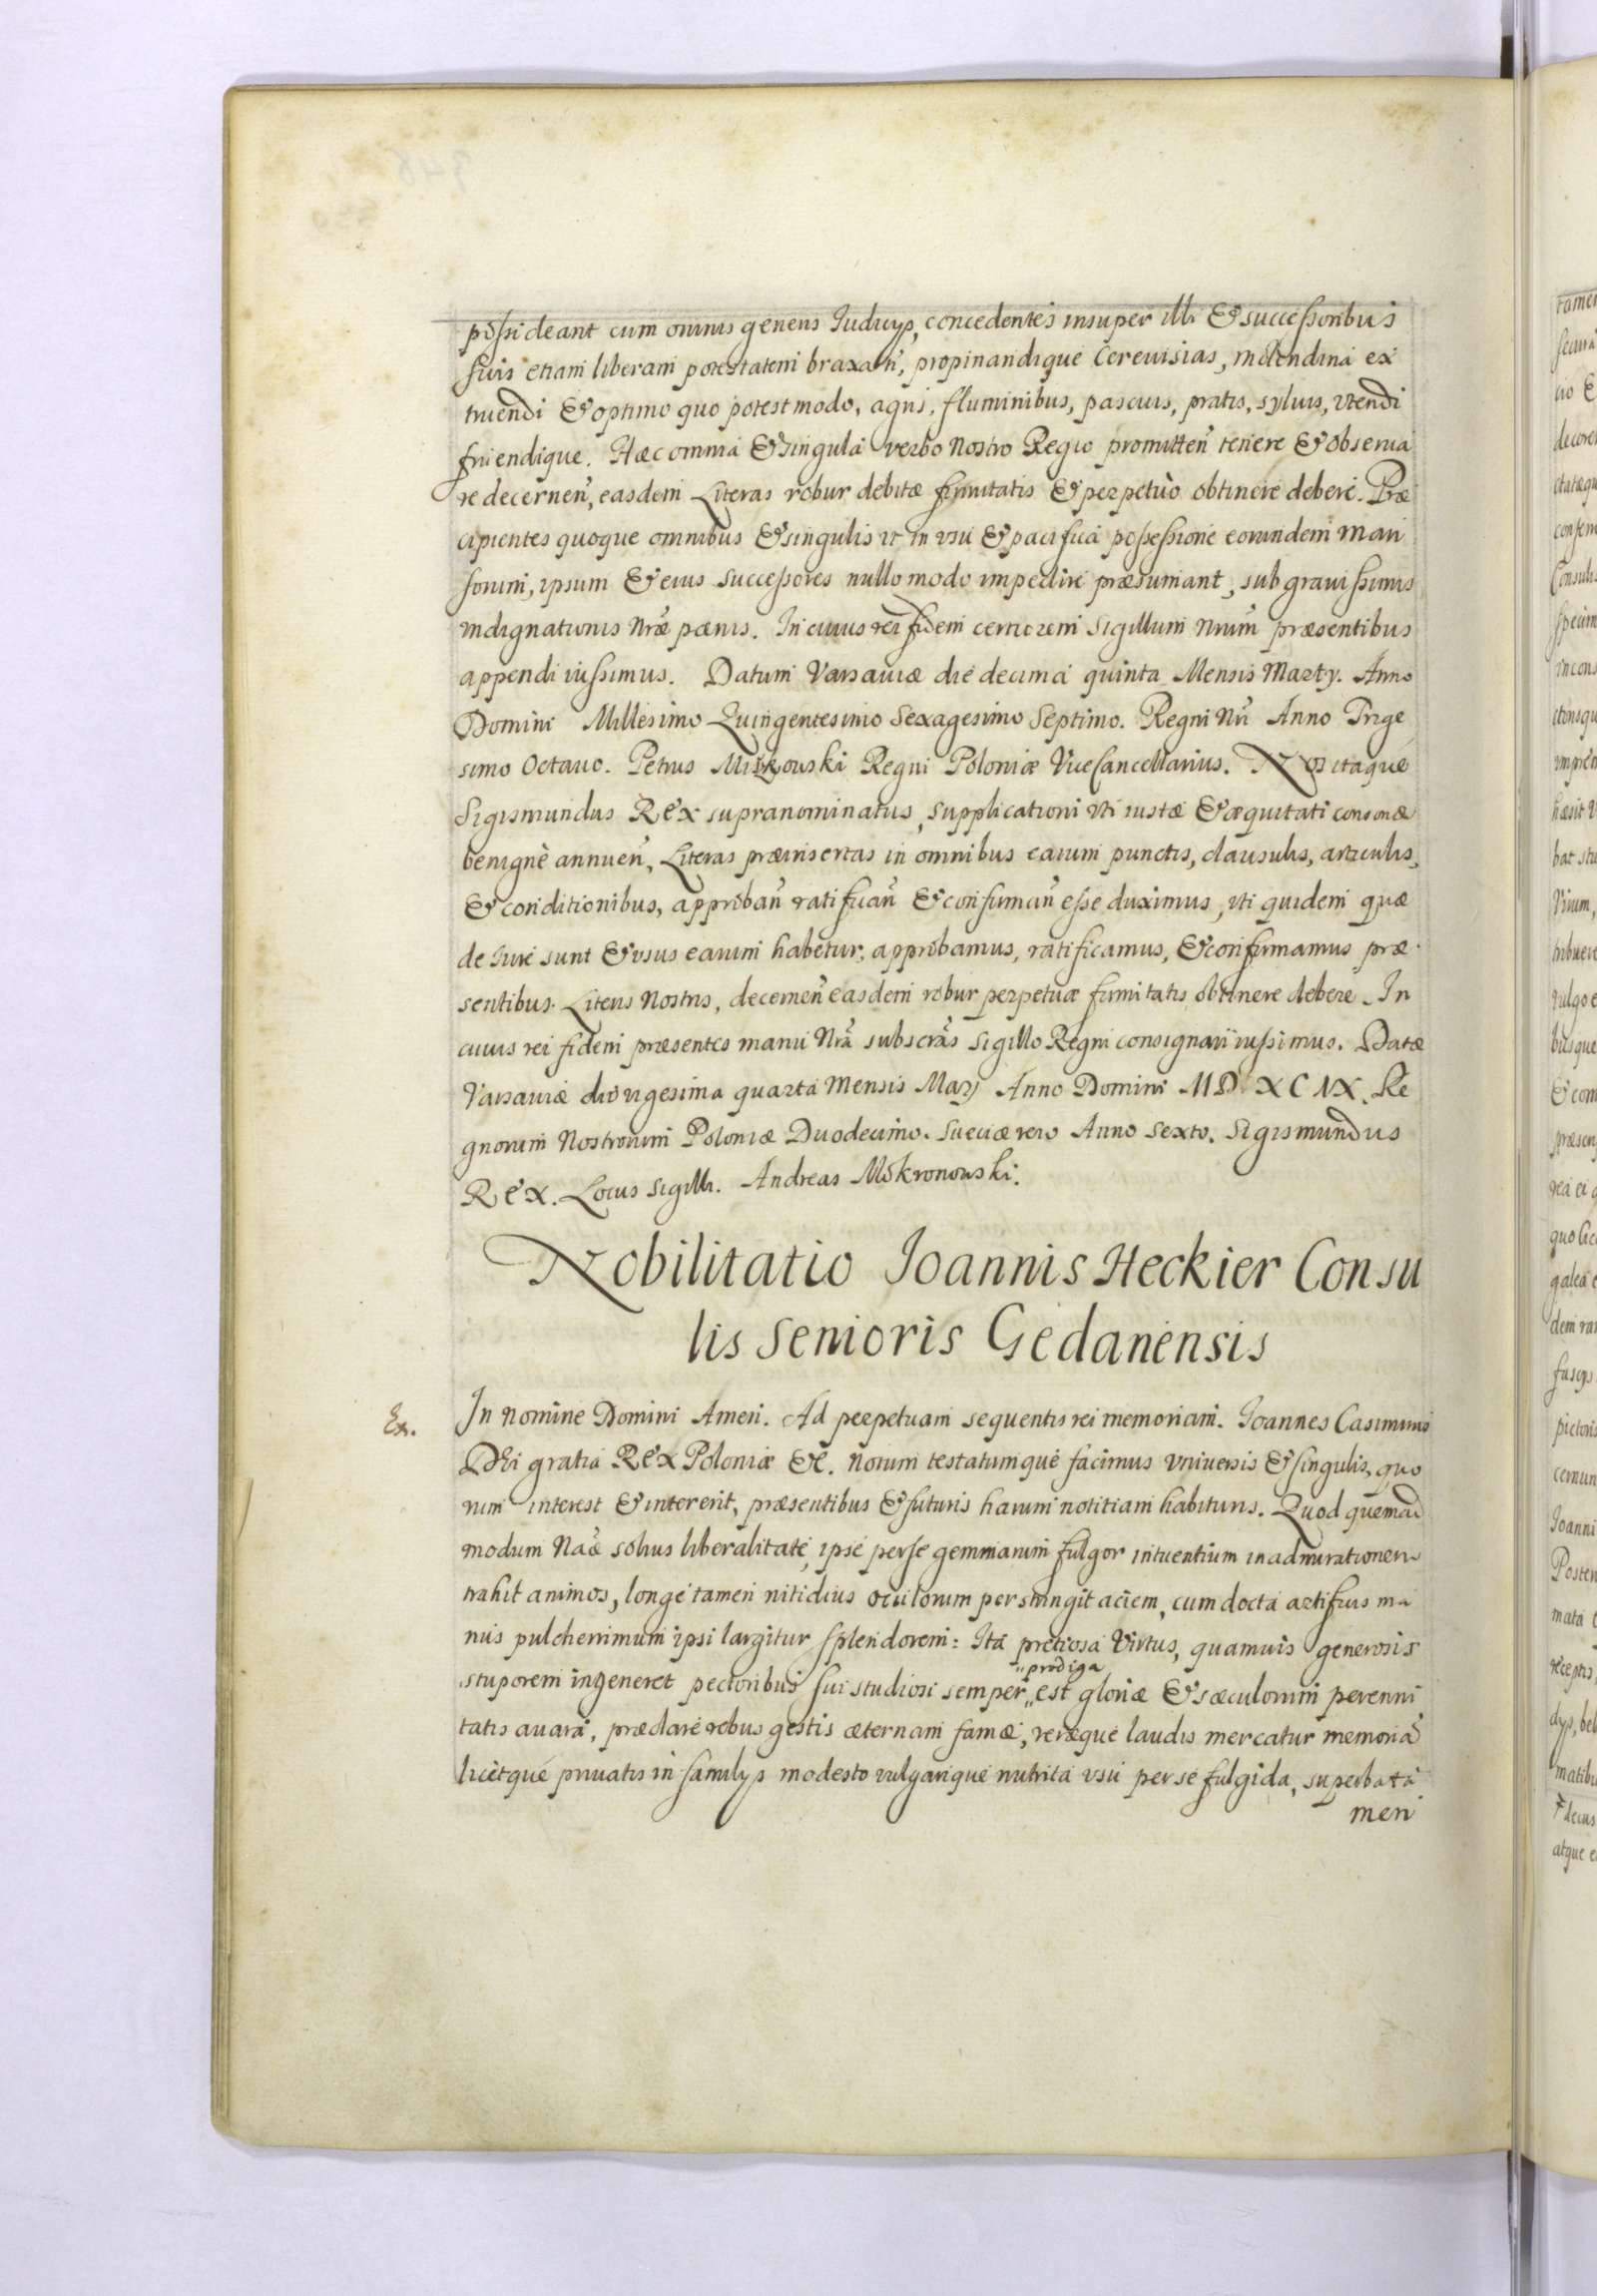 possideant cum omnis generis Iudicÿs, concedentes insuper illi & successoribus
suis etiam liberam potestatem braxan̄, propinandique Cereuisias, molendina ex
truendi & optimo quo potest modo, agris, fluminibus, pascuis, pratis, syluis, vtendi
fruendique. Hæc omnia & singula verbo nostro Regio promitten̄ tenere & obserua
re decernen̄, easdem Literas robur debitæ firmitatis & perpetuò obtinere debere. Præ
cipientes quoque omnibus & singulis vt in vsu & pacifica possessione eorundem man
sorum, ipsum & eius successores nullo modo impedire præsumant, sub grauissimis
indignationis Nr̄æ pænis. In cuius rei fidem certiorem Sigillum Nr̄um præsentibus
appendi iussimus. Datum Varsauiæ die decima quinta Mensis Martÿ. Anno
Domini Millesimo Quingentesimo Sexagesimo Septimo. Regni Nr̄i Anno Trige
simo Octauo. Petrus Miszkowski Regni Poloniæ ViceCancellarius. Nos itaque
Sigismundus Rex supranominatus, supplicationi vti iustæ & æquitati consonæ
benignè annuen̄, Literas præinsertas in omnibus earum punctis, clausulis, articulis,
& conditionibus, approban̄ ratifican̄ & confirman̄ esse duximus, vti quidem quæ
de Iure sunt & vsus earum habetur, approbamus, ratificamus, & confirmamus præ
sentibus Literis Nostris, decernen̄ easdem robur perpetuæ firmitatis obtinere debere. In
cuius rei fidem præsentes manu Nr̄a subscr̄as sigillo Regni consignari iussimus. Datæ
Varsauiæ die vigesima quarta Mensis Maÿ Anno Domini MD XC IX. Re
gnorum Nostrorum Poloniæ Duodecimo. Sueciæ vero Anno Sexto. Sigismundus
Rex. Locus Sigilli. Andreas Mokronowski.
Nobilitatio Ioannis Heckier Consu
lis Senioris Gedanensis
Ex.
In Nomine Domini Amen. Ad perpetuam sequentis rei memoriam. Ioannes Casimirus
Dei gratia Rex Poloniæ &c. Notum testatumque facimus vniuersis & singulis, quo
rum interest & intererit, præsentibus & futuris harum notitiam habituris. Quod quemad
modum Naæ solius liberalitate, ipse per se gemmarum fulgor intuentium in admirationem
trahit animos, longe tamen nitidius oculorum perstringit aciem, cum docta artificis ma
nus pulcherrimum ipsi largitur splendorem: Ita pretiosa Virtus, quamuis generosis
"prodiga
stuporem ingeneret pectoribus sui studiosi semper " est gloriæ & sæculorum perenni
tatis auara, præclare rebus gestis æternam famæ, veræque laudis mercatur memoriā
licetque priuatis in familÿs modesto vulgarique nutrita vsu per se fulgida, superba ta
men